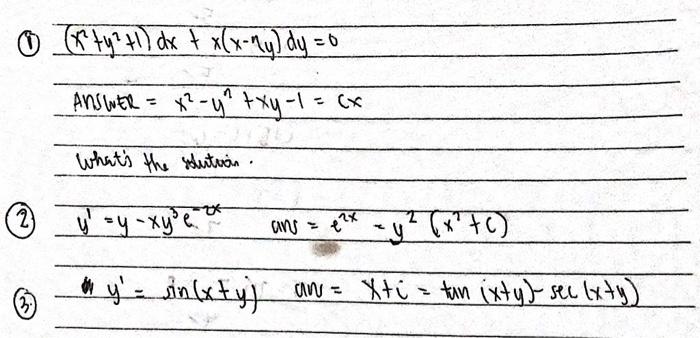 ① (x²+y²+1) dx + x(x-2y) dy = 0
ANSWER = x²-y²+xy-1 = Cx
What's the solution.
② y' = y - xy³e⁻²ˣ ans = e²ˣ = y² (x²+C)
③. y' = sin(x+y) ans = x+c = tan (x+y) - sec (x+y)